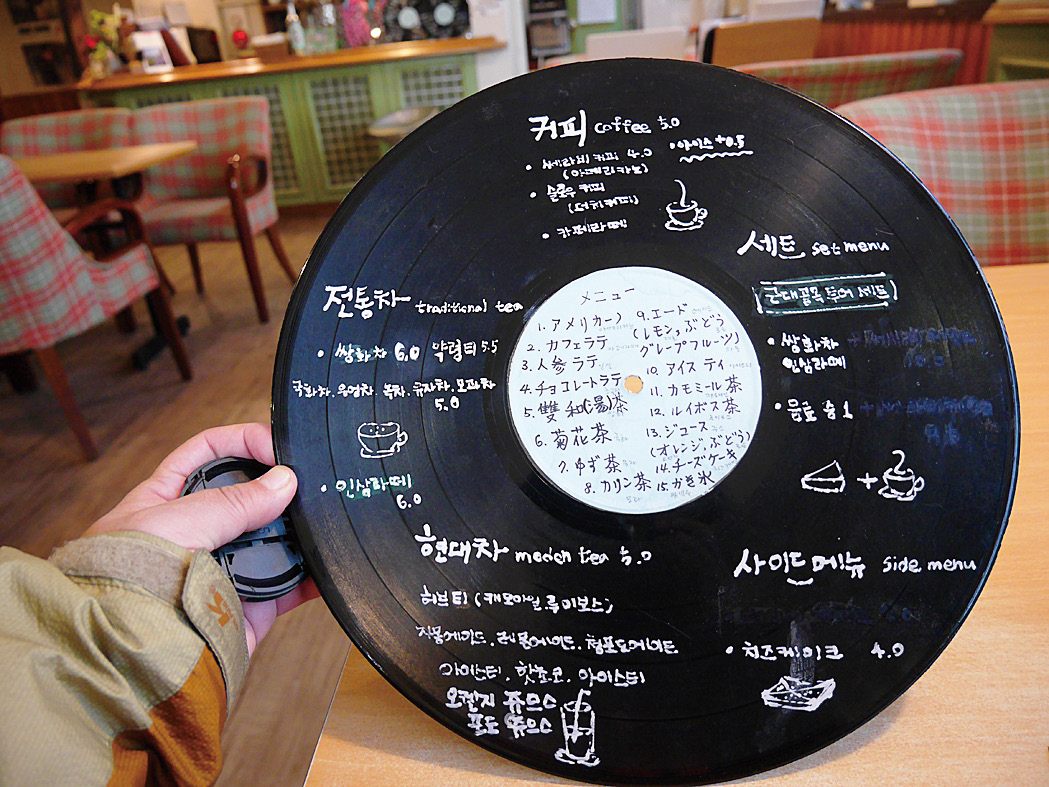 커피 coffee 5.0
• 쎄라비커피 4.0
(아메리카노)
• 아이스 +0.5
• 슬로우커피
(더치커피)
• 카페라떼
세트 set menu
근대골목투어 세트
• 쌍화차
인삼라떼
• 음료 중 1
전통차 traditional tea
• 쌍화차 6.0 약령티 5.5
국화차, 우엉차, 녹차, 유자차, 모과차
5.0
• 인삼라떼
6.0
メニュー
1. アメリカーノ
2. カフェラテ
3. 人参ラテ
4. チョコレートラテ
5. 雙和(湯)茶
6. 菊花茶
7. ゆず茶
8. カリン茶
9. エード
(レモン,ぶどう
グレープフルーツ)
10. アイス ティ
11. カモミール茶
12. ルイボス茶
13. ジュース
(オレンジ,ぶどう)
14. チーズケーキ
15. かき氷
현대차 moden tea 5.0
허브티 (캐모마일, 루이보스)
자몽에이드, 레몬에이드, 청포도에이드
아이스티, 핫초코, 아이스티
오렌지 쥬스
포도 쥬스
사이드메뉴 side menu
• 치즈케이크 4.0